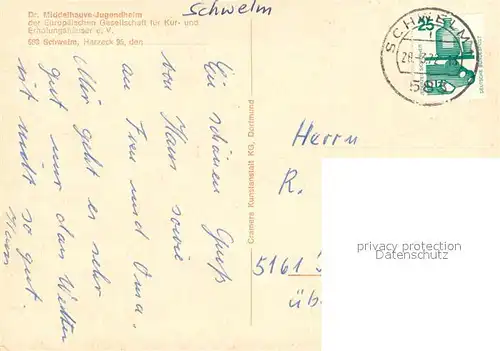 Schwelm
Dr. Middelhauve-Jugendheim
der Europäischen Gesellschaft für Kur- und
Erholungshäuser e. V.
583 Schwelm, Haroeck 95, den
SCHWELM
28.-3.72-15
5830
25
DEUTSCHE BUNDESPOST
Ein schönen Gruß
von Hans sowie
an Frau und Oma.
Mir geht es sehr
gut nur das Wetter
ist nicht so gut.
Hans
Cramers Kunstanstalt KG, Dortmund
Herrn
R.
5161
üb
privacy protection
Datenschutz